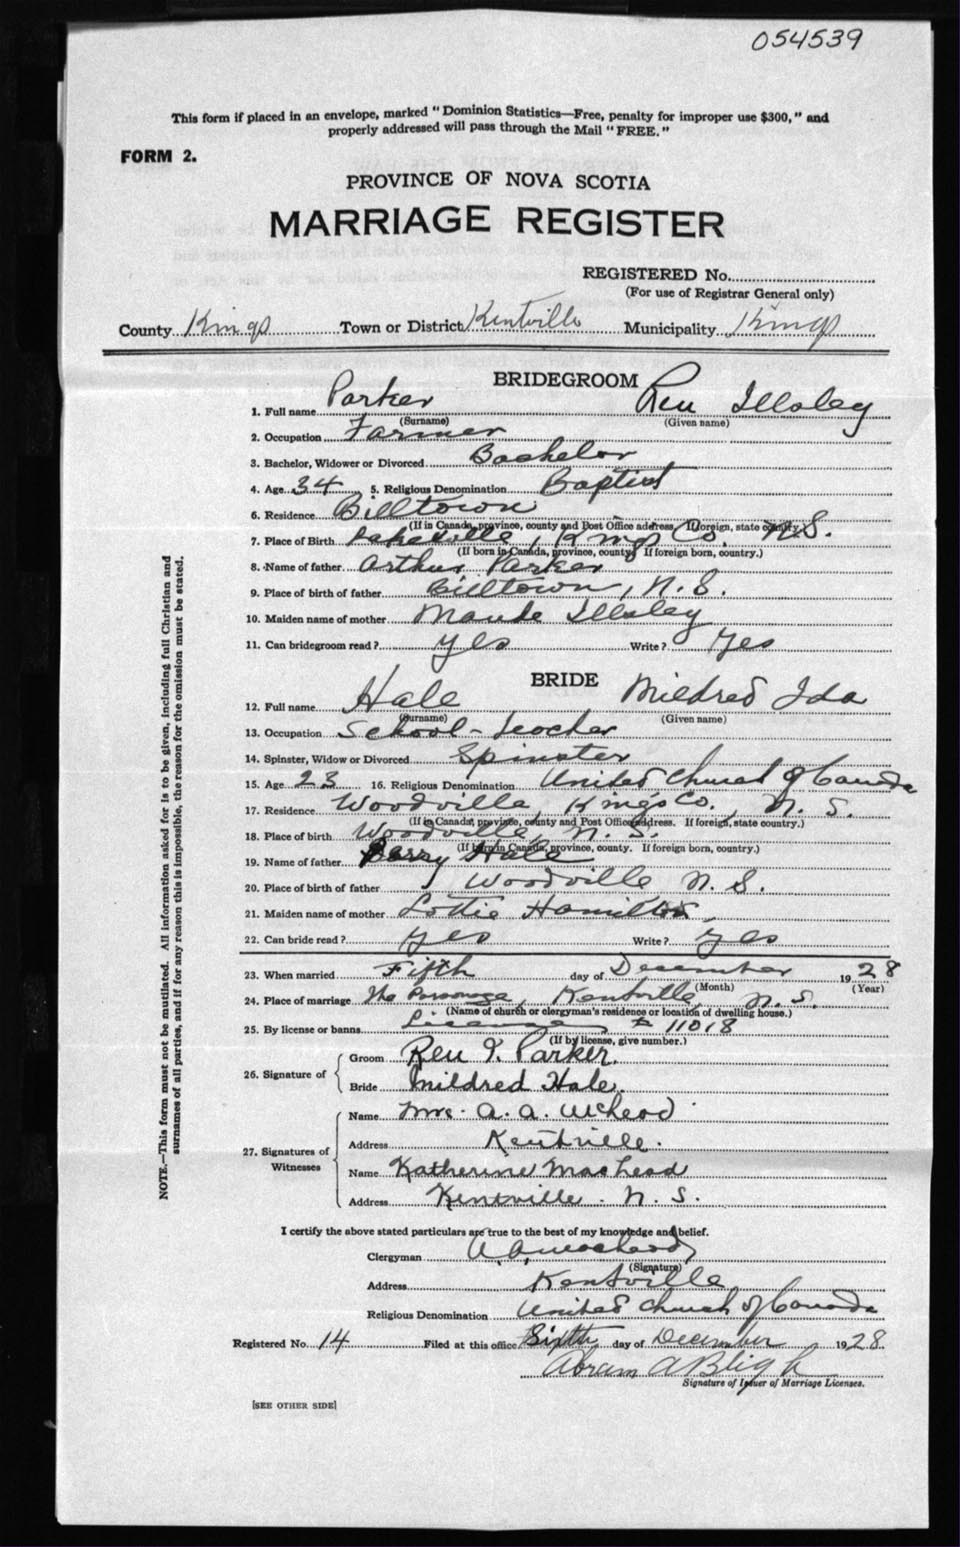 054539
This form if placed in an envelope, marked "Dominion Statistics—Free, penalty for improper use $300," and
properly addressed will pass through the Mail "FREE."
FORM 2.
PROVINCE OF NOVA SCOTIA
MARRIAGE REGISTER
REGISTERED No.
(For use of Registrar General only)
County Kings Town or District Kentville Municipality Kings
BRIDEGROOM
1. Full name Parker Reu Illsley
(Surname) (Given name)
2. Occupation Farmer
3. Bachelor, Widower or Divorced Bachelor
4. Age 34 5. Religious Denomination Baptist
6. Residence Billtown
(If in Canada, province, county and Post Office address, If foreign, state country.)
7. Place of Birth Lakeville, Kings Co. N.S.
(If born in Canada, province, county. If foreign born, country.)
8. Name of father Arthur Parker
9. Place of birth of father Billtown, N.S.
10. Maiden name of mother Maude Illsley
11. Can bridegroom read? Yes Write? Yes
BRIDE
12. Full name Hale Mildred Ida
(Surname) (Given name)
13. Occupation School-teacher
14. Spinster, Widow or Divorced Spinster
15. Age 23 16. Religious Denomination United Church of Canada
17. Residence Woodville, Kings Co., N.S.
(If in Canada, province, county and Post Office address. If foreign, state country.)
18. Place of birth Woodville, N.S.
(If born in Canada, province, county. If foreign born, country.)
19. Name of father Hale
20. Place of birth of father Woodville N.S.
21. Maiden name of mother Lottie Hamilton
22. Can bride read? Yes Write? Yes
23. When married Fifth day of December 1928
(Month) (Year)
24. Place of marriage The Parsonage, Kentville, N.S.
(Name of church or clergyman's residence or location of dwelling house.)
25. By license or banns License # 11018
(If by license, give number.)
26. Signature of Groom Reu I. Parker.
Bride Mildred Hale.
27. Signatures of Witnesses Name Mrs. A. A. McLeod
Address Kentville.
Name Katherine MacLeod
Address Kentville. N.S.
I certify the above stated particulars are true to the best of my knowledge and belief.
Clergyman A. A. MacLeod
(Signature)
Address Kentville
Religious Denomination United Church of Canada
Registered No. 14 Filed at this office Sixth day of December 1928
Abram A Bligh
Signature of Issuer of Marriage Licenses.
[SEE OTHER SIDE]
NOTE.—This form must not be mutilated. All information asked for is to be given, including full Christian and
surnames of all parties, and if for any reason this is impossible, the reason for the omission must be stated.